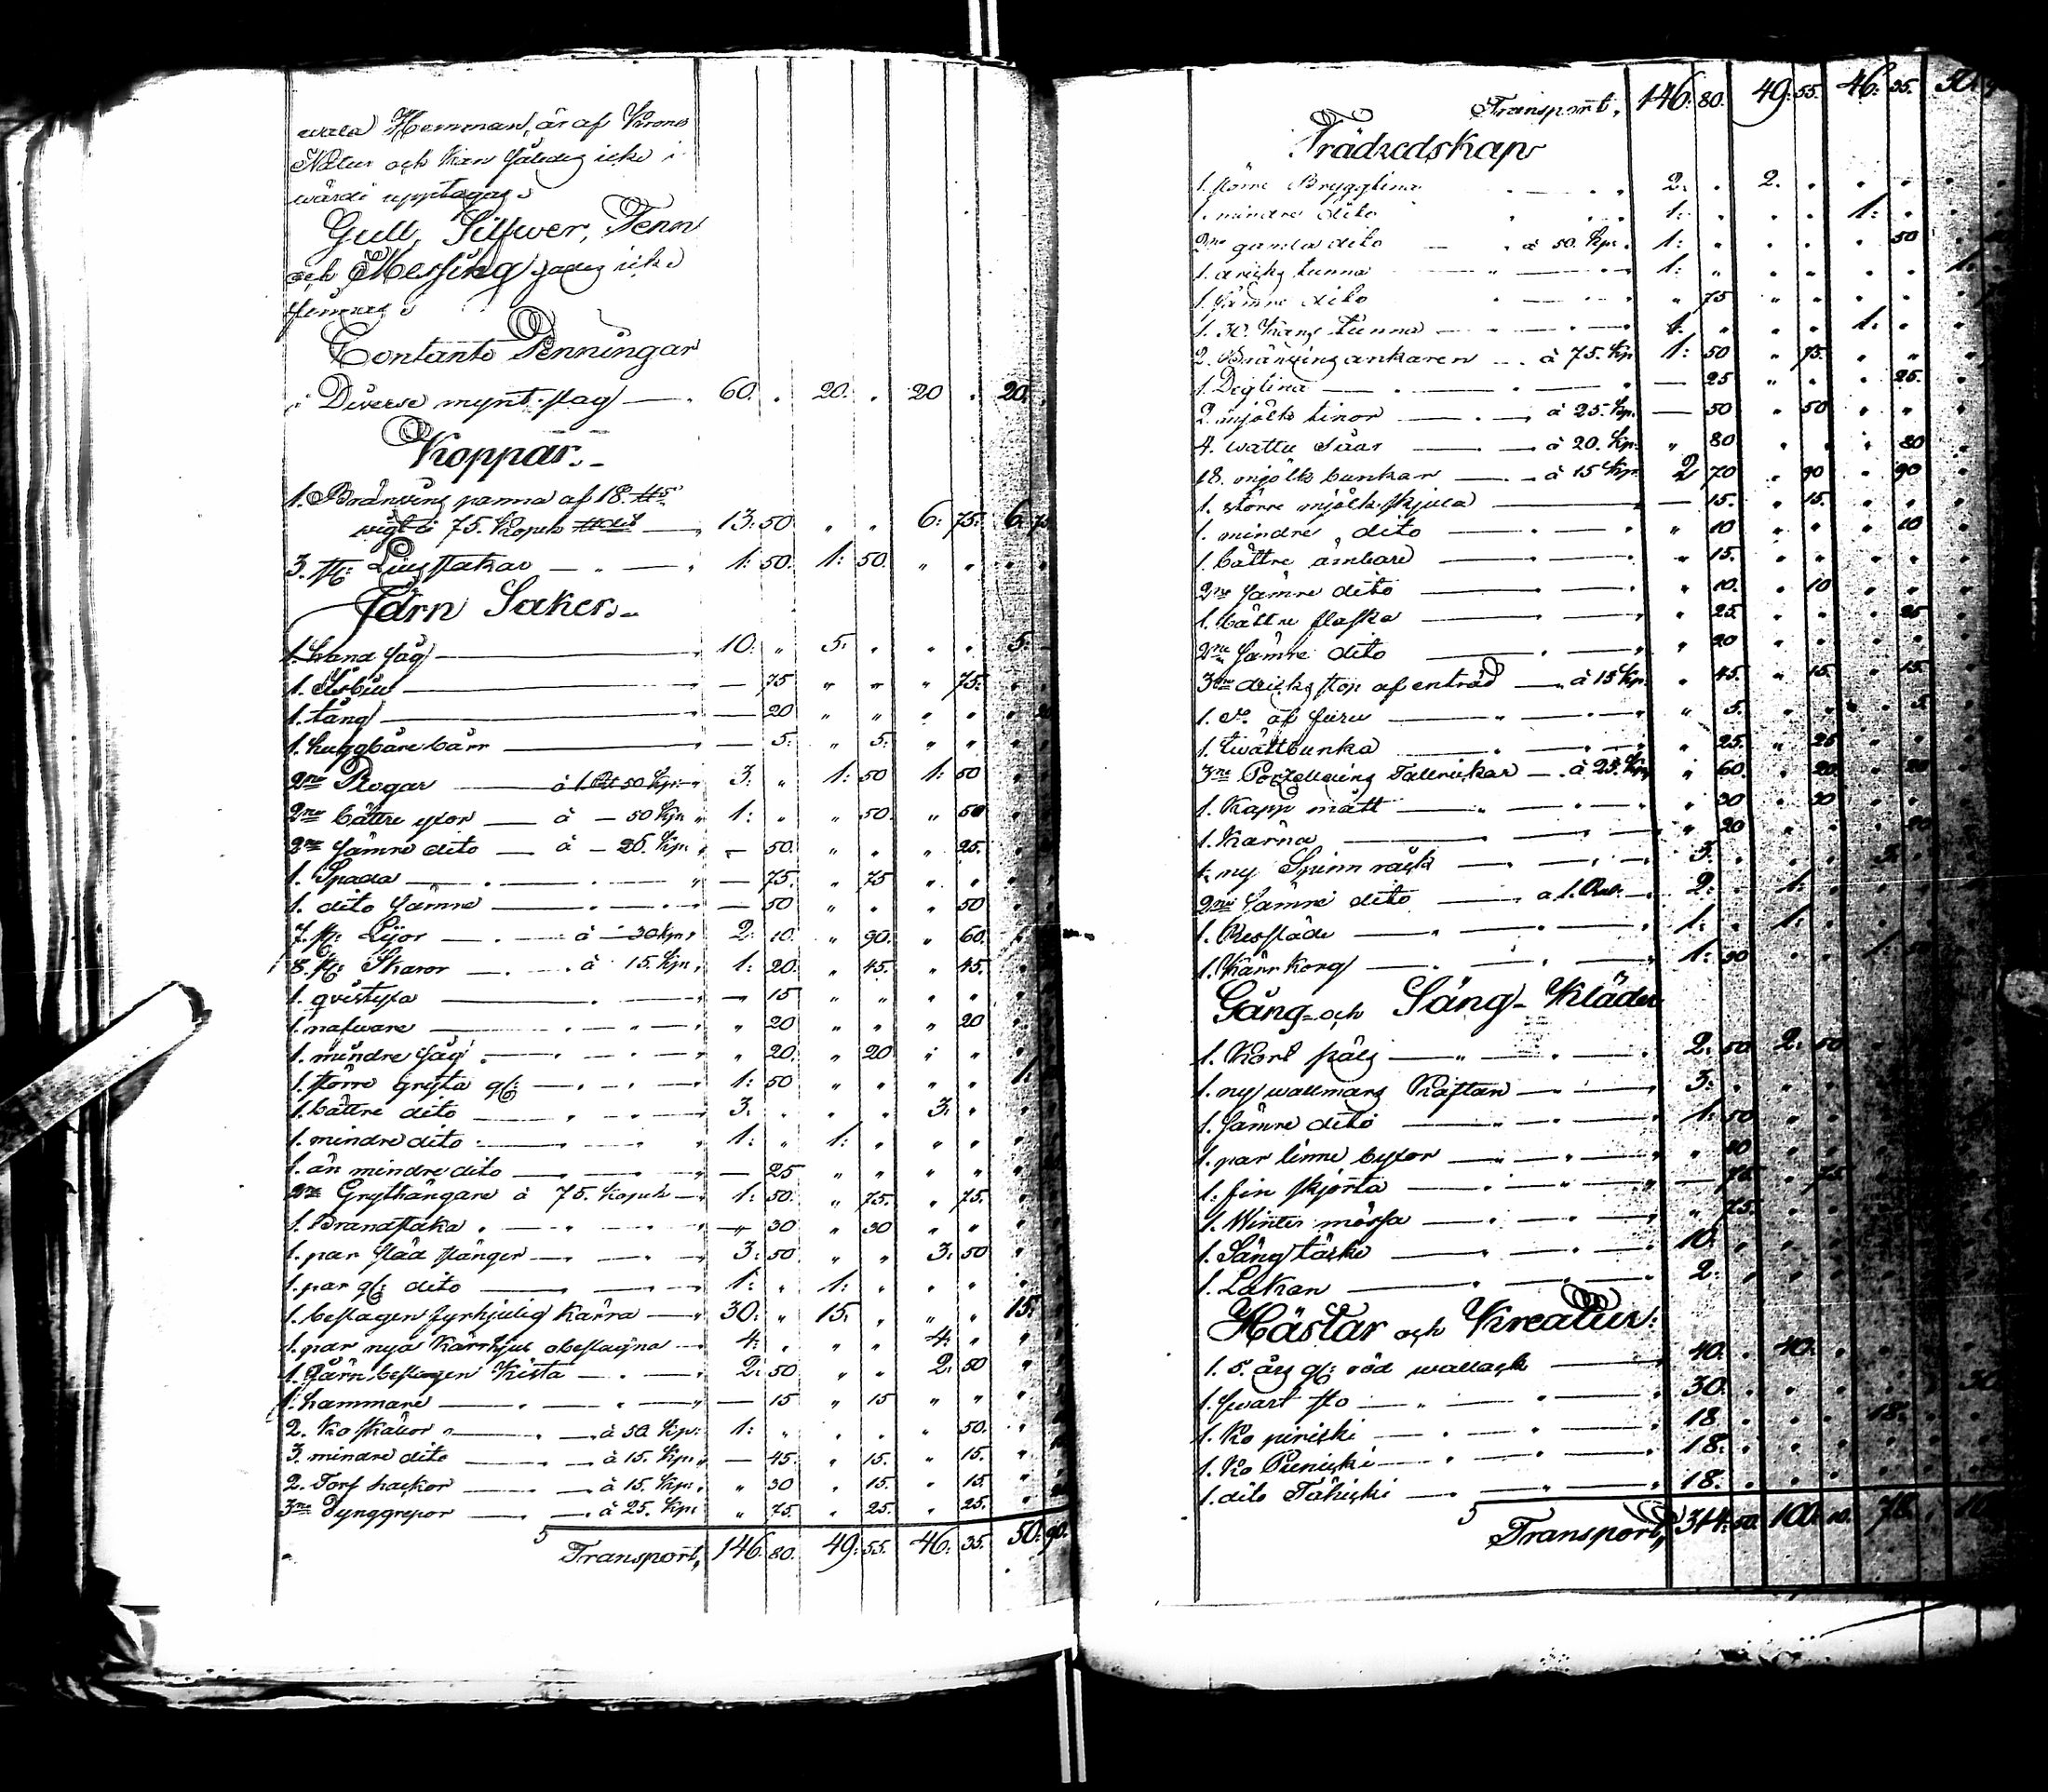 wala Hemman, är af Krono
Natur och kan således icke i
wärde upptagas
Gull, Silfwer, Tenn
och Messing sades icke
finnas
Contante Penningar
i Diverse mynt slag 60. 20. 20 20.
Koppar.
1. Bränvins panna af 18.
wigt à 75. Kopek 13: 50 6: 75. 6: 75
3. st: Ljusstakar 1: 50. 1: 50.
Järn Saker.
1. hand såg 10: 5. 5.
1. Isbill 75 75.
1. tång 20 20
1. huggbäre bärr 5. 5.
2ne Plogar à 1. 50 Kp: 3. 1: 50 1: 50
2ne bättre yxor à 50 Kpr 1: 50. 50
2ne sämre dito à 25. Kpr 50. 25.
1. Spada 75. 75
1. dito sämre 50 50
7. st: Lijor à 30 Kpr 2: 10. 90. 60.
8. st: Skaror à 15. Kpr. 1: 20. 45. 45.
1. qvistyxa 15
1. nafware 20 20
1. mindre såg 20. 20
1. större gryta gl: 1: 50 1:
1. bättre dito 3. 3.
1. mindre dito 1: 1:
1. än mindre dito 25
2ne Grythängare à 75. Kopek 1: 50. 75. 75.
1. Brandstaka 30 30
1. par släd stänger 3: 50 3: 50
1. par gl: dito 1: 1:
1. beslagen fyrhjulig Kärra 30. 15. 15.
1. par nya Kärrhjul obeslagna 4. 4.
1. Järn beslagen Kista 2: 50 2. 50
1. hammare 15 15
2. Ko skällor à 50. Kp: 1: 50.
3. mindre dito à 15. Kpr 45. 15. 15.
2. Torf hackor à 15. Kpr. 30 15. 15.
3ne Dynggrepor à 25. Kpr 75. 25. 25.
Transport, 146. 80. 49: 55. 46: 35. 50: 90.
Transport, 146: 80. 49: 55. 46: 35. 50
Trädredskap
1. större Bryggtina 2. 2.
1. mindre dito 1: 1:
2ne gamla dito à 50. Kpr. 1: 50
1. dricks tunna 1: 1:
1. sämre dito 75
1. 30. Kans tunna 1. 1:
2. Bränvins ankaren à 75. Kp 1: 50 75.
1. Degtina 25 25.
2. mjölk tinor à 25. Kp. 50 50
4. wattu Såar à 20. Kp: 80 80
18. mjölk bunkar à 15 Kp. 2 70 90 90
1. större mjölk skjula 15. 15.
1. mindre dito 10 10
1. bättre ämbare 15.
2ne sämre dito 10. 10
1. bättre flaska 25. 25
2ne sämre dito 20
3ne dricks stop af enträd à 15 Kp. 45. 15. 15.
1. d:o af furu 5. 5.
1. twättbunka 25. 25
3ne Porzellains Tallrickar à 25. Kp 60. 20. 20
1. Kapp mått 30 30
1. Kärna 20 20
1. ny Spinn råck 3. 3.
2ne sämre dito à 1. Rub. 2. 1:
1. Ressläde 1: 1:
1. Kärr korg 1: 50 1:
Gång- och Säng-Kläder
1. Kort päls 2: 50 2: 50
1. ny wallmans Kaftan 3.
1. sämre dito 1: 50
1. par linne byxor
1. fin skjorta 75 75
1. Winter mössa 75.
1. Säng täcke 10.
1. Lakan 2.
Hästar och Kreatur:
1. 5. års gl: röd wallack 40. 40.
1. swart sto 30. 30
1. Ko piriski 18. 18.
1. Ko Puniski 18.
1. dito Täkicki 18.
Transport, 314: 50. 100. 10. 78.